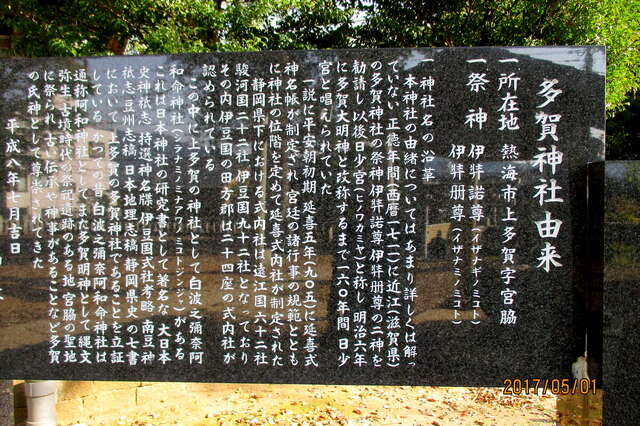 多賀神社由来
一所在地 熱海市上多賀字宮脇
一祭神 伊弉諾尊(イザナギノミコト)
伊弉册尊(イザナミノミコト)
一神社名の沿革
本神社の由緒については あまり詳しくは解っ
ていない 正徳年間(西暦一七一二)に近江(滋賀県)
の多賀神社の祭神伊弉諾尊伊弉册尊の二神を
勧請し以後日少宮(ヒノワカミヤ)と称し 明治六年
に多賀大明神と改称するまで一六〇年間 日少
宮と唱えられていた
一説に平安朝初期 延喜五年(九〇五)に延喜式
神名帳が制定され 宮廷の諸行事の規範ととも
に神社の位階を定めて延喜式内社が制定された
静岡県下における式内社は遠江国六十二社
駿河国二十二社 伊豆国九十二社となっており
その内伊豆国の田方郡は二十四座の式内社が
認められている
この中に上多賀の神社として 白波之彌奈阿
和命神社(シラナミノミナアワノミコトジンジャ)がある
これは日本神社の研究書として著名な 大日本
史神祇志 特選神名牒 伊豆国式社考略 南豆神
祇志 豆州志稿 日本地理志稿 静岡県史の七書
において 上多賀の多賀神社であることを立証
している かつての昔 白波之彌奈阿和命神社は
通称阿和神社として また多賀明神として縄文
弥生 古墳時代の祭祀遺跡のある 地宮脇の聖地
に祭られ 古い伝承や神事があることなど多賀
の氏神として尊崇されてきた
平成八年七月吉日
2017/05/01